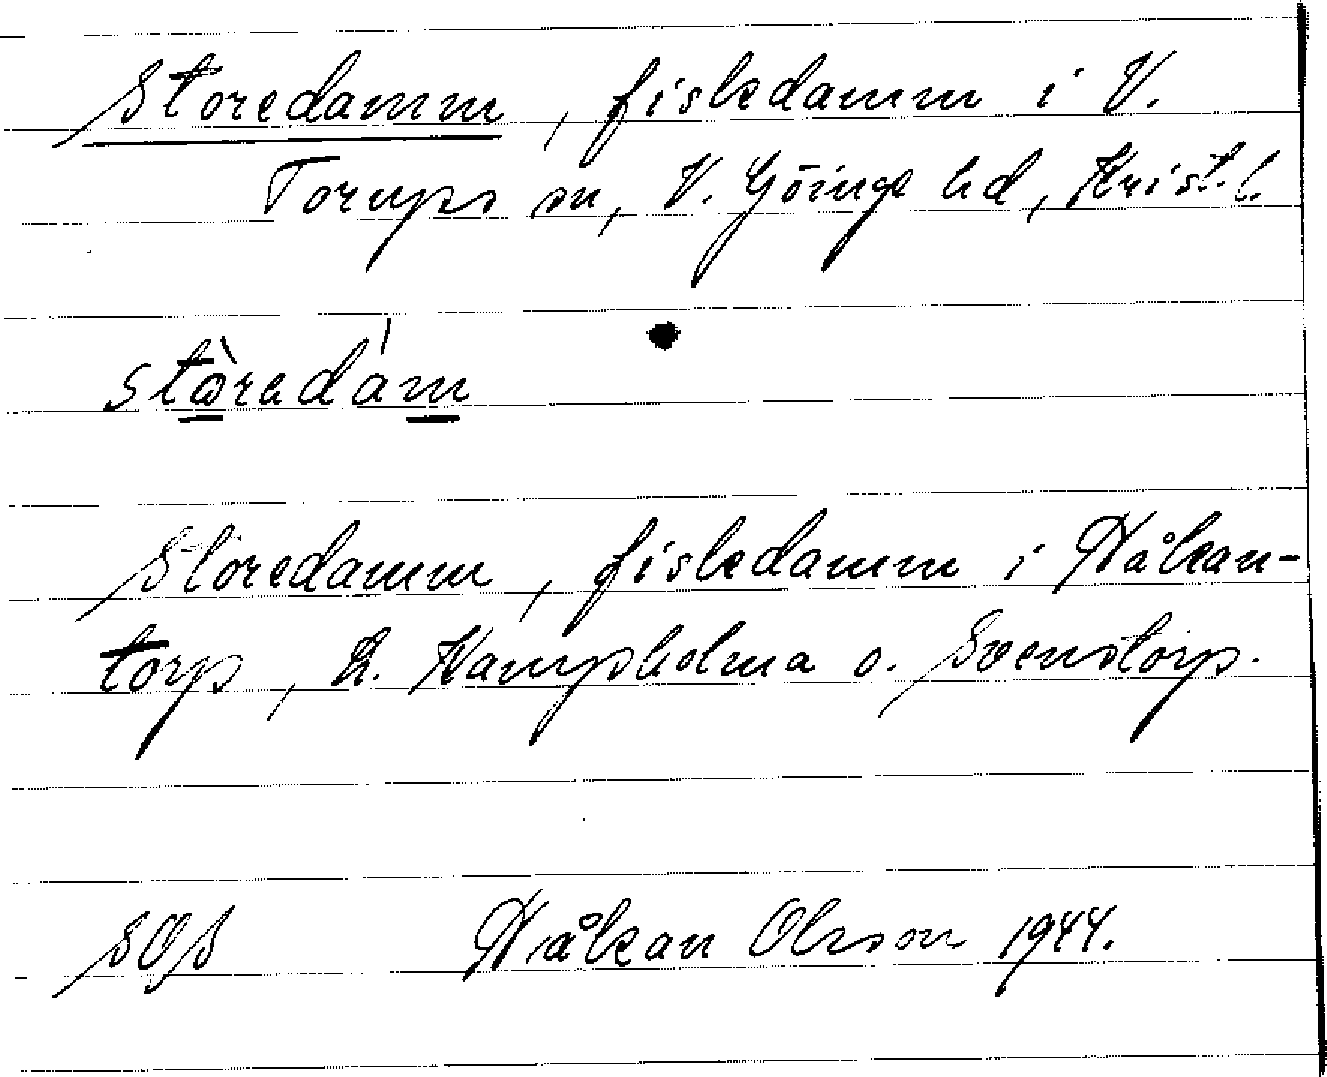 Storedamm, fiskedamm i V.
Torups sn, V. Göinge hd, Krist. l.
stòredám
Storedamm, fiskedamm i Håkan-
torp, L. Kampholma o. Svenstorp.
SOS Håkan Olsson 1944.